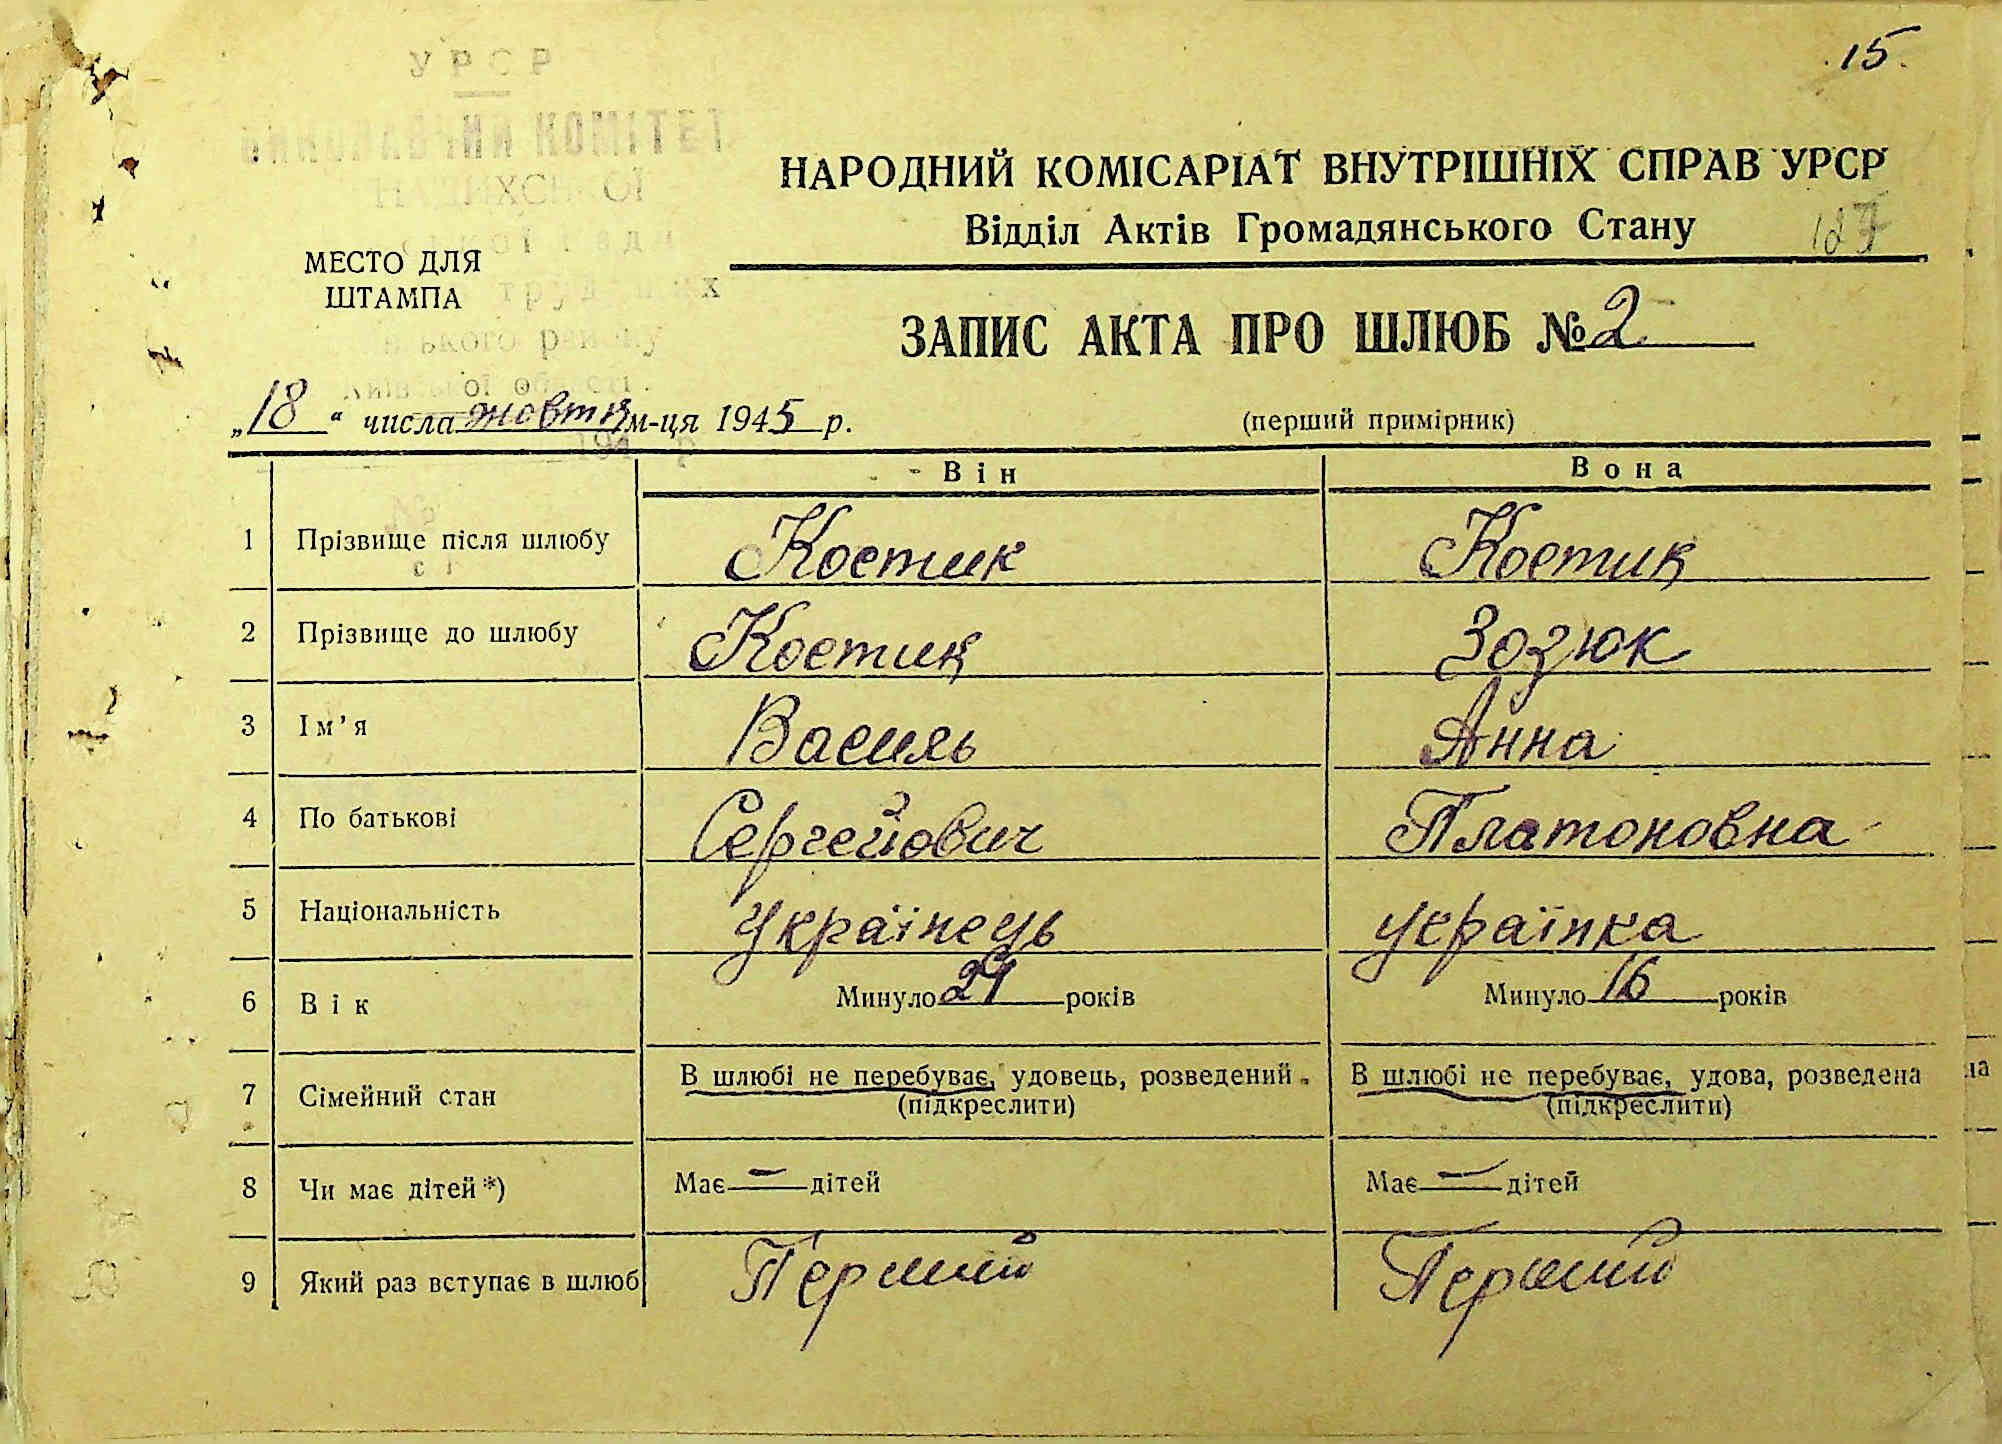 15.
УРСР
КОМІТЕТ
НАРОДНИЙ КОМІСАРІАТ ВНУТРІШНІХ СПРАВ УРСР
Відділ Актів Громадянського Стану
187
МЕСТО ДЛЯ
ШТАМПА
ЗАПИС АКТА ПРО ШЛЮБ № 2
„18" числа жовтня м-ця 1945 р.
(перший примірник)
Він Вона
1 Прізвище після шлюбу Костик Костик
2 Прізвище до шлюбу Костик Зозюк
3 Ім'я Василь Анна
4 По батькові Сергейович Платоновна
5 Національність українець українка
6 Вік Минуло 21 років Минуло 16 років
7 Сімейний стан В шлюбі не перебуває, удовець, розведений. В шлюбі не перебуває, удова, розведена
(підкреслити) (підкреслити)
8 Чи має дітей*) Має — дітей Має — дітей
9 Який раз вступає в шлюб Перший Перший